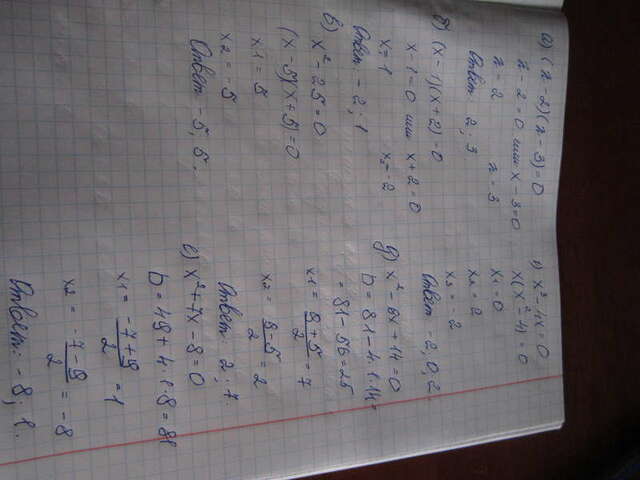 а) (x-2)(x-3)=0
x-2=0 или x-3=0
x=2 x=3
Ответ: 2; 3
б) (x-1)(x+2)=0
x-1=0 или x+2=0
x=1 x=-2
Ответ: -2; 1
в) x²-25=0
(x-5)(x+5)=0
x1=5
x2=-5
Ответ -5; 5.
г) x³-4x=0
x(x²-4)=0
x1=0
x2=2
x3=-2
Ответ -2, 0, 2.
д) x²-9x+14=0
D=81-4·1·14=
=81-56=25
x1=9+5/2=7
x2=9-5/2=2
Ответ: 2; 7.
е) x²+7x-8=0
D=49+4·1·8=81
x1=-7+9/2=1
x2=-7-9/2=-8
Ответ: -8; 1.